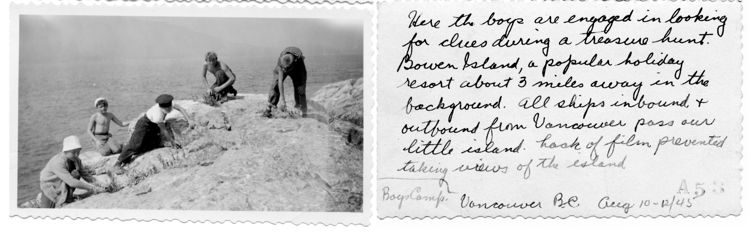 Here the boys are engaged in looking
for clues during a treasure hunt.
Bowen Island, a popular holiday
resort about 3 miles away in the
background. All ships inbound +
outbound from Vancouver pass our
little island. Lack of film prevented
taking views of the island
Boys Camp. Vancouver B.C. Aug 10-12/45